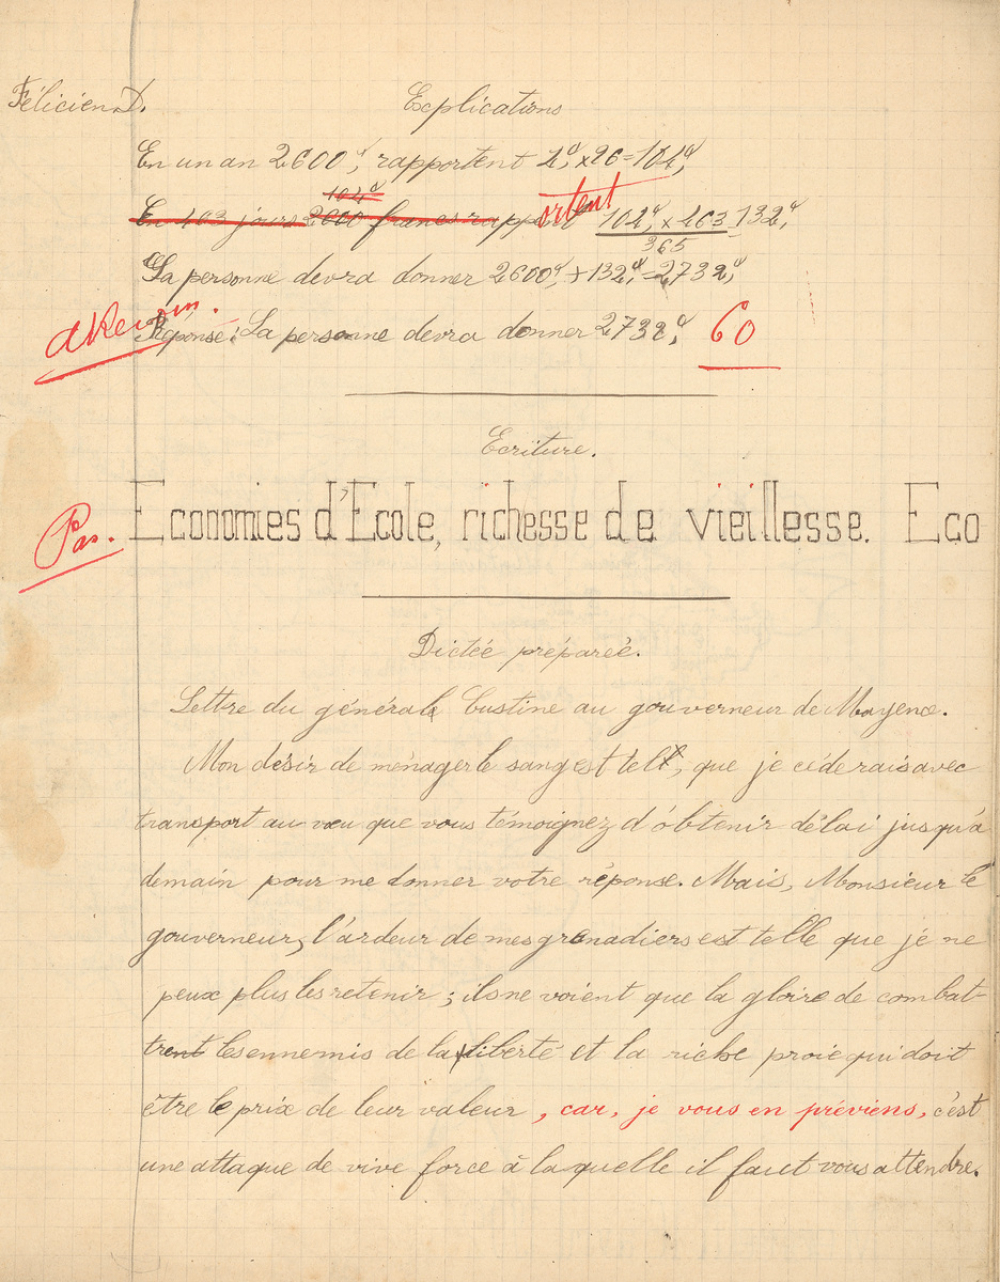 Félicien D. Explications
En un an 2600f, rapportent 4f, × 26 = 104f,
104f
En 463 jours 2600 francs rapportent 104f, × 463 = 132f,
365
La personne devra donner 2600f, + 132f, = 2732f,
Réponse : La personne devra donner 2732f, 60
Ecriture.
Pas. Economies d'Ecole, richesse de vieillesse. Eco
Dictée préparée.
Lettre du générale Custine au gouverneur de Mayence.
Mon désir de ménager le sang est tel, que je céderais avec
transport au vœu que vous témoignez d'obtenir délai jusqu'à
demain pour me donner votre réponse. Mais, Monsieur le
gouverneur, l'ardeur de mes grenadiers est telle que je ne
peux plus les retenir ; ils ne voient que la gloire de combat-
trent les ennemis de la liberté et la riche proie qui doit
être le prix de leur valeur, car, je vous en préviens, c'est
une attaque de vive force à laquelle il faut vous attendre.